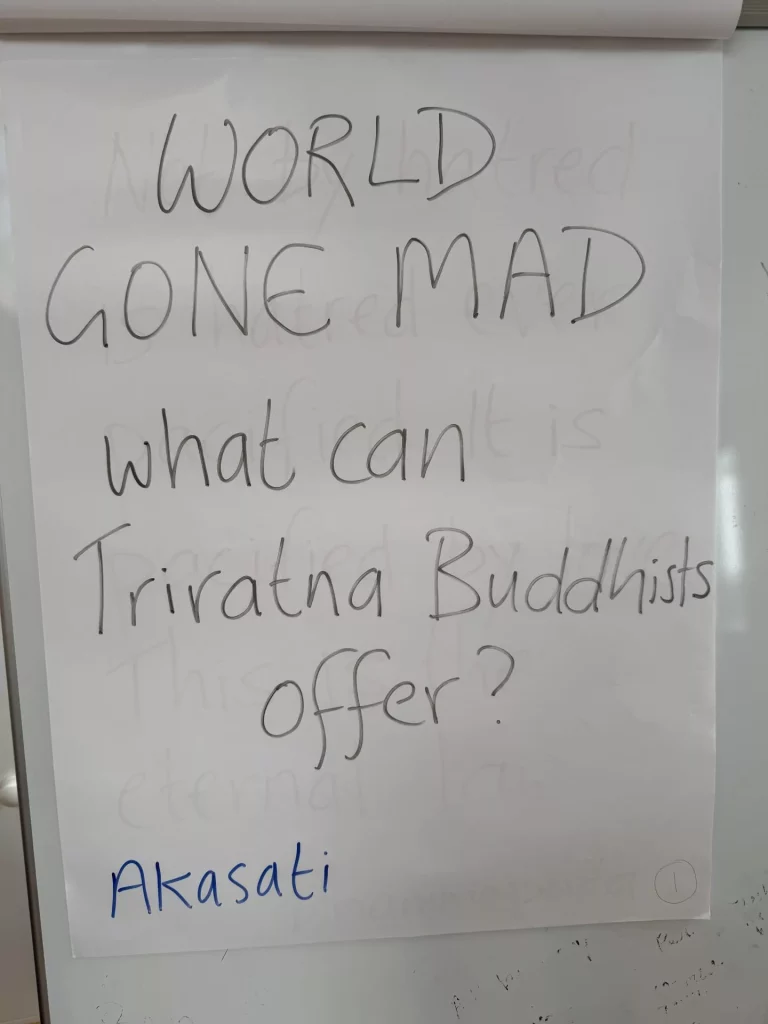 WORLD
GONE MAD
what can
Triratna Buddhists
offer?
Akasati
1